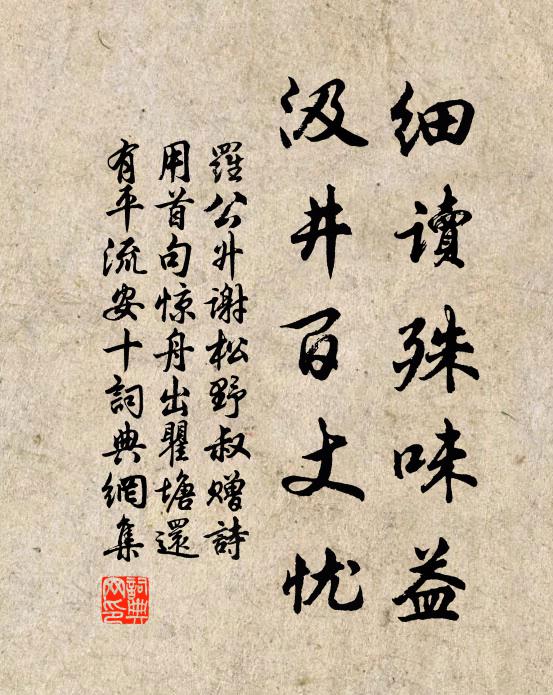 細讀殊味益
汲井百丈忧
羅公升謝松野叔贈詩
用首句惊舟出瞿塘還
有平流安十詞典網集
詞典
网印